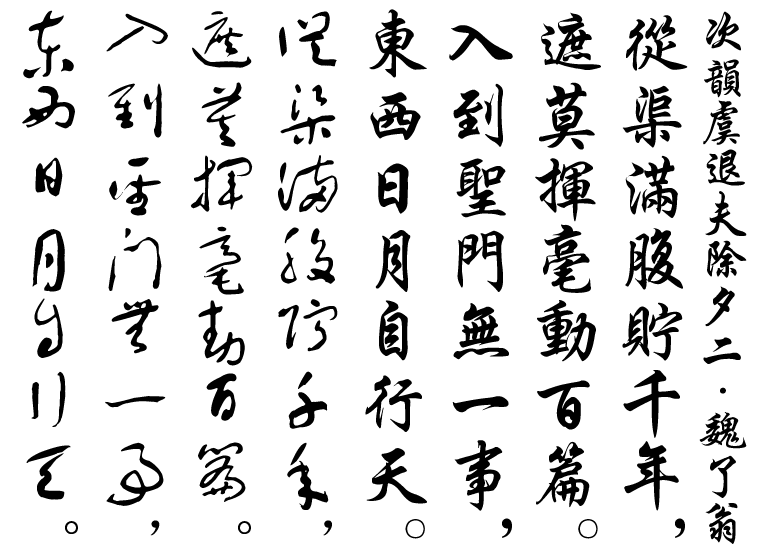 次韻虞退夫除夕二·魏了翁
從渠滿腹貯千年，
遮莫揮毫動百篇。
入到聖門無一事，
東西日月自行天。
從渠滿腹貯千年，
遮莫揮毫動百篇。
入到聖門無一事，
東西日月自行天。